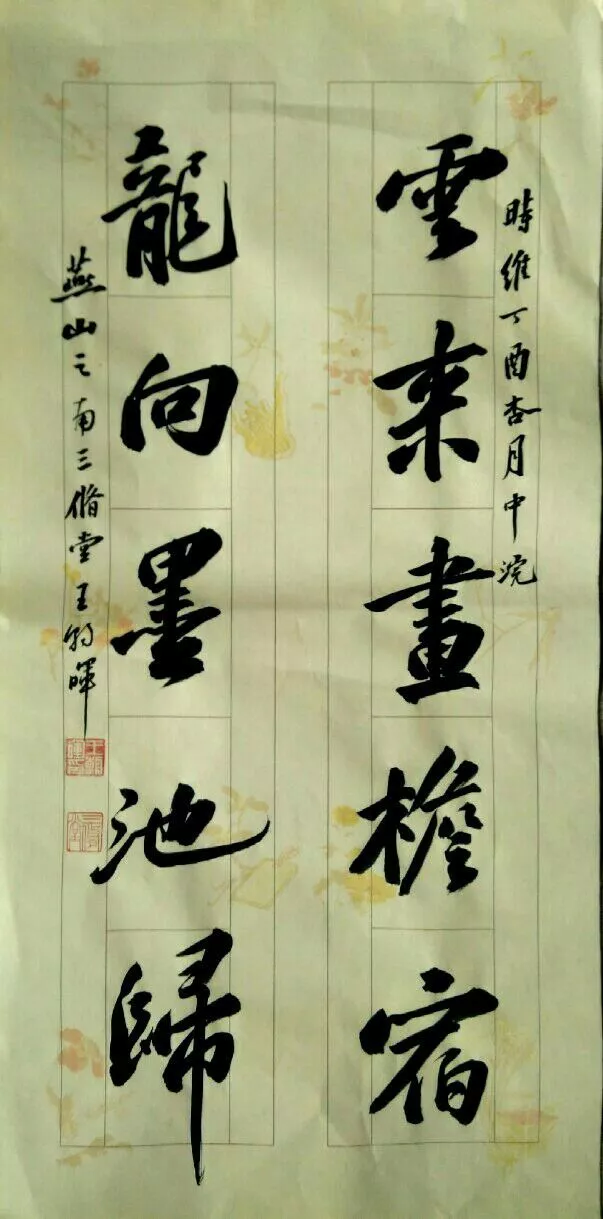 時維丁酉杏月中浣
雲來畫檐宿
龍向墨池歸
燕山之南三脩堂王暉